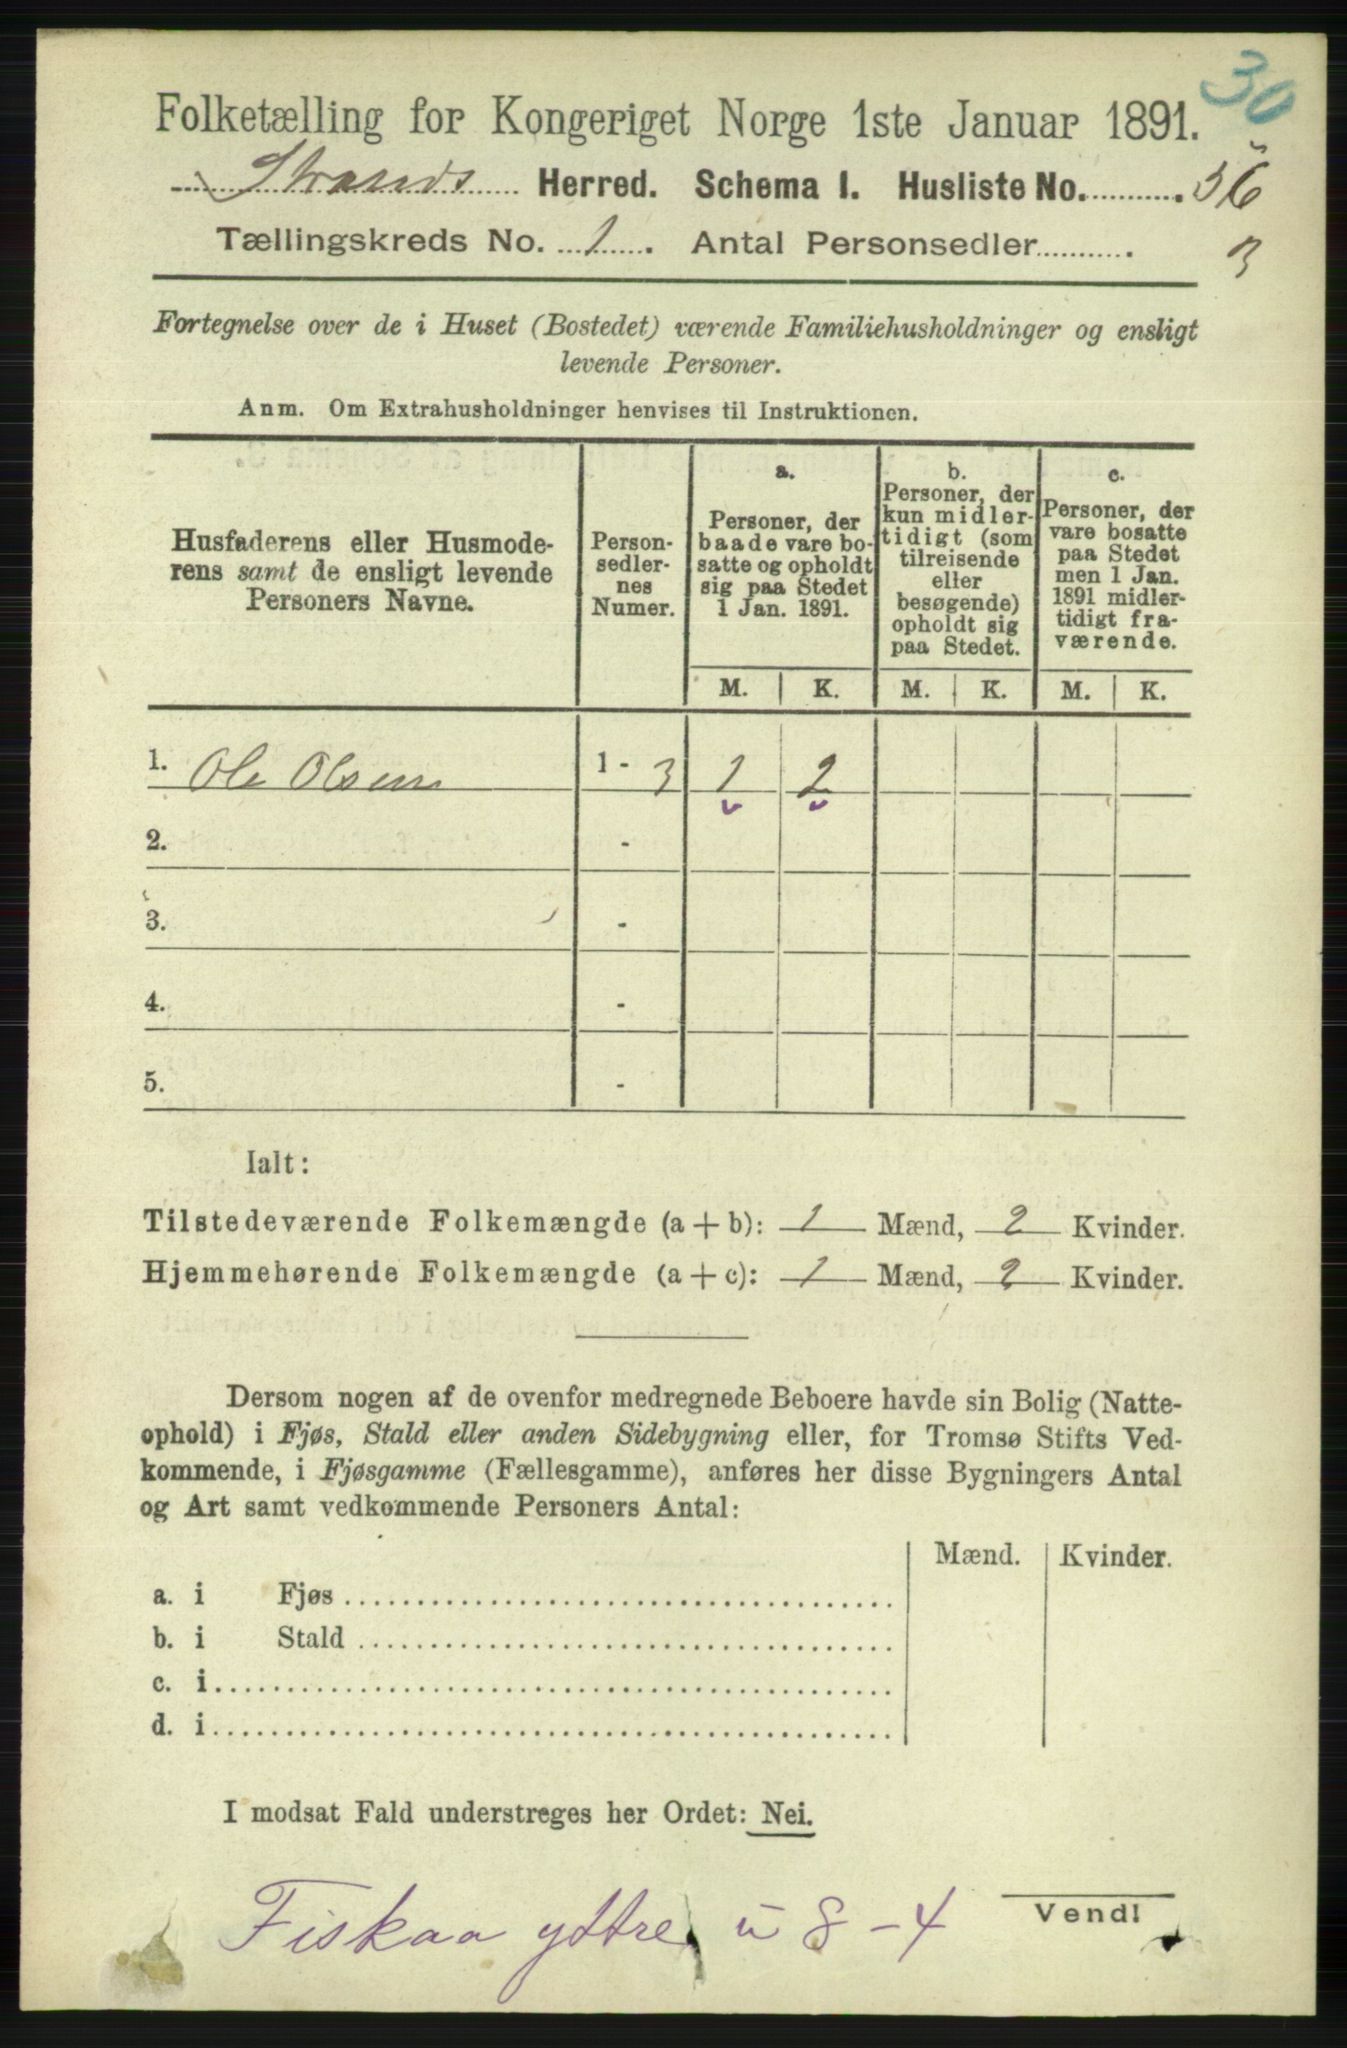 30
Folketælling for Kongeriget Norge 1ste Januar 1891.
Strands Herred. Schema I. Husliste No. 36
Tællingskreds No. 1. Antal Personsedler 3
Fortegnelse over de i Huset (Bostedet) værende Familiehusholdninger og ensligt
levende Personer.
Anm. Om Extrahusholdninger henvises til Instruktionen.
Husfaderens eller Husmode-
rens samt de ensligt levende
Personers Navne.
Person-
sedler-
nes
Numer.
a.
Personer, der
baade vare bo-
satte og opholdt
sig paa Stedet
1 Jan. 1891.
b.
Personer, der
kun midler-
tidigt (som
tilreisende
eller
besøgende)
opholdt sig
paa Stedet.
c.
Personer, der
vare bosatte
paa Stedet
men 1 Jan.
1891 midler-
tidigt fra-
værende.
M. K. M. K. M. K.
1. Ole Olsen 1 - 3 1 2
2. -
3. -
4. -
5. -
Ialt:
Tilstedeværende Folkemængde (a + b): 1 Mænd, 2 Kvinder.
Hjemmehørende Folkemængde (a + c): 1 Mænd, 2 Kvinder.
Dersom nogen af de ovenfor medregnede Beboere havde sin Bolig (Natte-
ophold) i Fjøs, Stald eller anden Sidebygning eller, for Tromsø Stifts Ved-
kommende, i Fjøsgamme (Fællesgamme), anføres her disse Bygningers Antal
og Art samt vedkommende Personers Antal:
Mænd. Kvinder.
a. i Fjøs
b. i Stald
c. i
d. i
I modsat Fald understreges her Ordet: Nei.
Fiskaa yttre u 8-4
Vend!